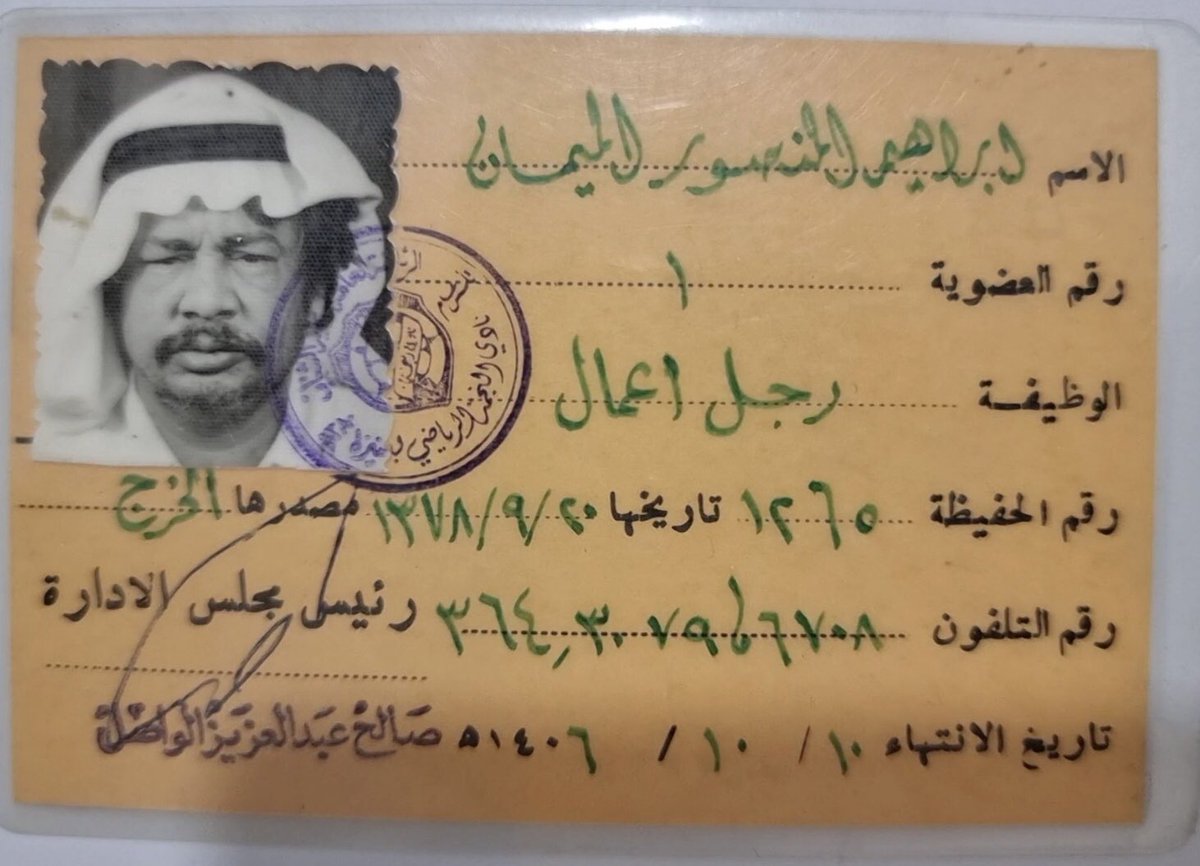 الاسم ابراهيم المنصور الميمان
رقم العضوية ١
الوظيفة رجل اعمال
رقم الحفيظة ١٢٦٥ تاريخها ١٣٧٨/٩/٢٠ مصدرها الخرج
رقم التلفون ٣٦٤٣٠٧٩ / ٦٧٠٨
رئيس مجلس الادارة
تاريخ الانتهاء ١٠ / ١٠ / ١٤٠٦ ه
صَالح عَبدالعزيز الواصل
نادي النجمة الرياضي بعنيزة